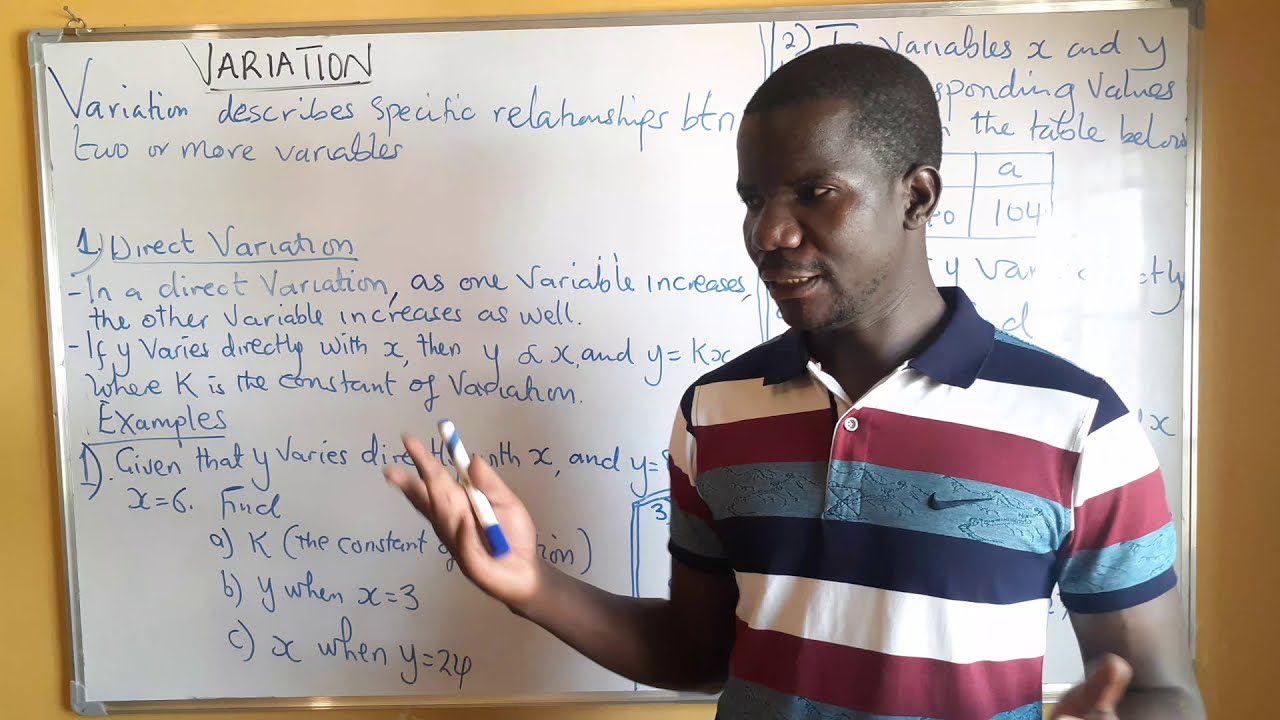 VARIATION
Variation describes specific relationships btn
two or more variables
1) Direct Variation
- In a direct Variation, as one Variable increases,
the other Variable increases as well.
- If y Varies directly with x, then y α x, and y = Kx
Where K is the constant of Variation.
Examples
1). Given that y Varies with x, and y=
x=6. Find
a) K (the constant
b) y when x=3
c) x when y=24
2) Variables x and y
Values
the table below
a
104
y
x
3